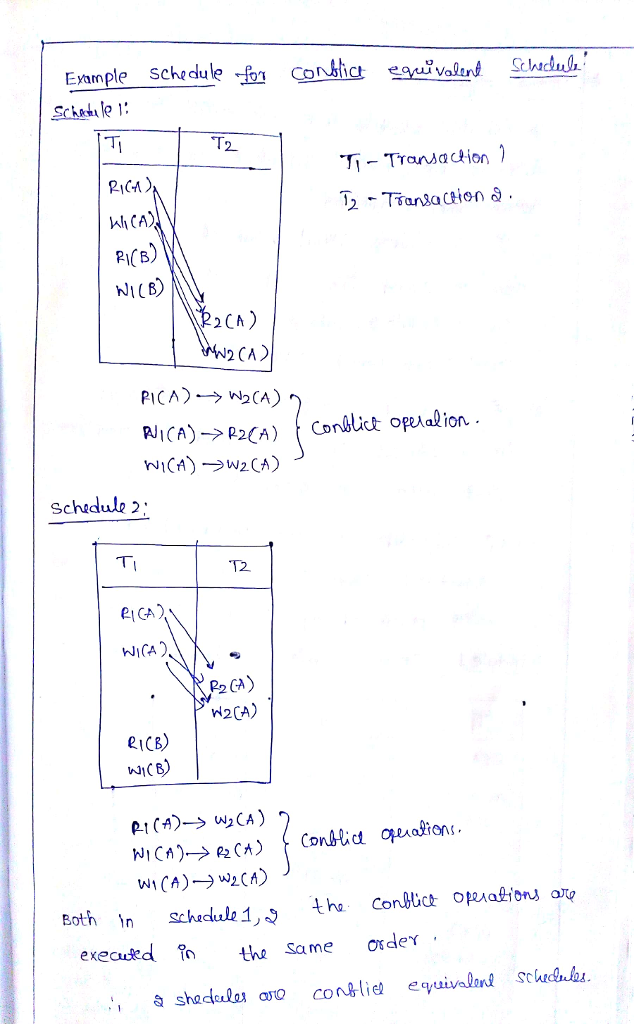 Example schedule for conflict equivalent Schedule:
Schedule 1:
T1 T2
T1 - Transaction 1
T2 - Transaction 2.
R1(A)
W1(A)
R1(B)
W1(B)
R2(A)
W2(A)
R1(A) → W2(A)
W1(A) → R2(A)
W1(A) → W2(A)
Conflict operation.
Schedule 2:
T1 T2
R1(A)
W1(A)
R2(A)
W2(A)
R1(B)
W1(B)
R1(A) → W2(A)
W1(A) → R2(A)
W1(A) → W2(A)
Conflict operations.
Both in schedule 1, 2 the conflict operations are
executed in the same order.
∴ 2 shedules are conflict equivalent schedules.